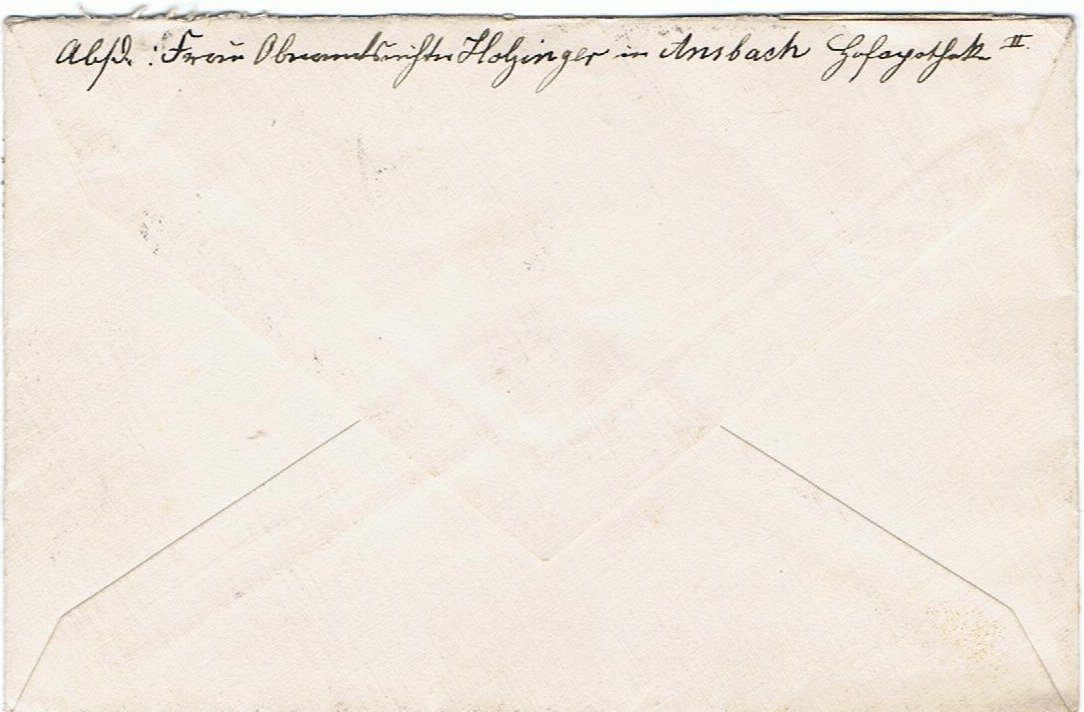 Absd.: Frau Oberamtsrichter Holzinger in Ansbach Hofapotheke II.